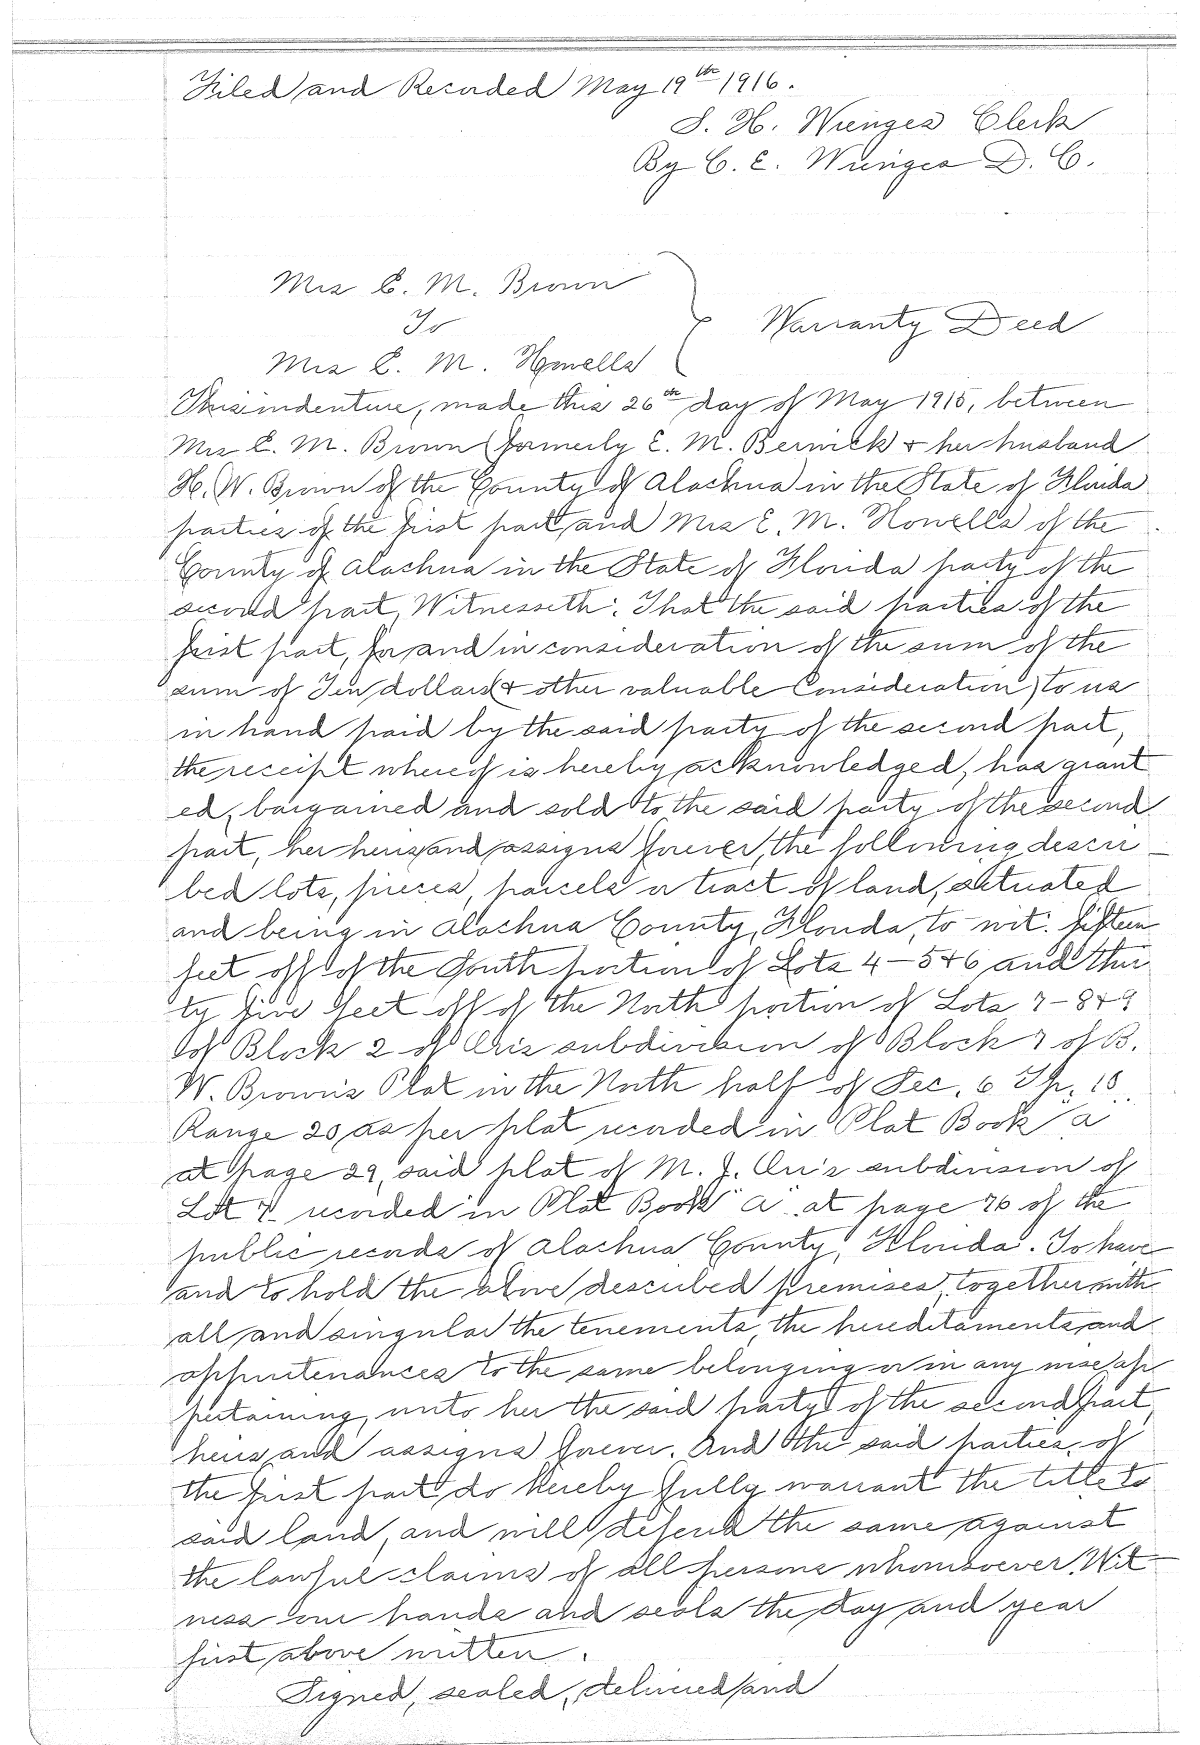 Filed and Recorded May 19th 1916.
S. H. Wienges Clerk
By C. E. Wienges D. C.
Mrs E. M. Brown
To
Warranty Deed
Mrs E. M. Howells
This indenture, made this 26th day of May 1915, between
Mrs E. M. Brown (formerly E. M. Berwick & her husband
H. W. Brown of the County of Alachua in the State of Florida
parties of the first part and Mrs E. M. Howells of the
County of Alachua in the State of Florida party of the
second part, Witnesseth: That the said parties of the
first part, for and in consideration of the sum of the
sum of Ten dollars (& other valuable Consideration) to us
in hand paid by the said party of the second part,
the receipt whereof is hereby acknowledged, has grant
ed, bargained and sold to the said party of the second
part, her heirs and assigns forever, the following descri-
bed lots, pieces, parcels or tract of land, situated
and being in Alachua County, Florida, to wit: fifteen
feet off of the South portion of Lots 4-5&6 and thir
ty five feet off of the North portion of Lots 7-8&9
of Block 2 of Orr's subdivision of Block 7 of B.
W. Brown's Plat in the North half of Sec. 6 Tp. 10
Range 20 as per plat recorded in Plat Book "A"
at page 29, said plat of M. J. Orr's subdivision of
Lot 7 recorded in Plat Book "A" at page 76 of the
public records of Alachua County, Florida. To have
and to hold the above described premises, together with
all and singular the tenements, the hereditaments and
appurtenances to the same belonging or in any wise ap
pertaining, unto her the said party of the second part,
heirs and assigns forever. And the said parties of
the first part do hereby fully warrant the title to
said land, and will defend the same against
the lawful claims of all persons whomsoever. Wit-
ness our hands and seals the day and year
first above written.
Signed, sealed, delivered and